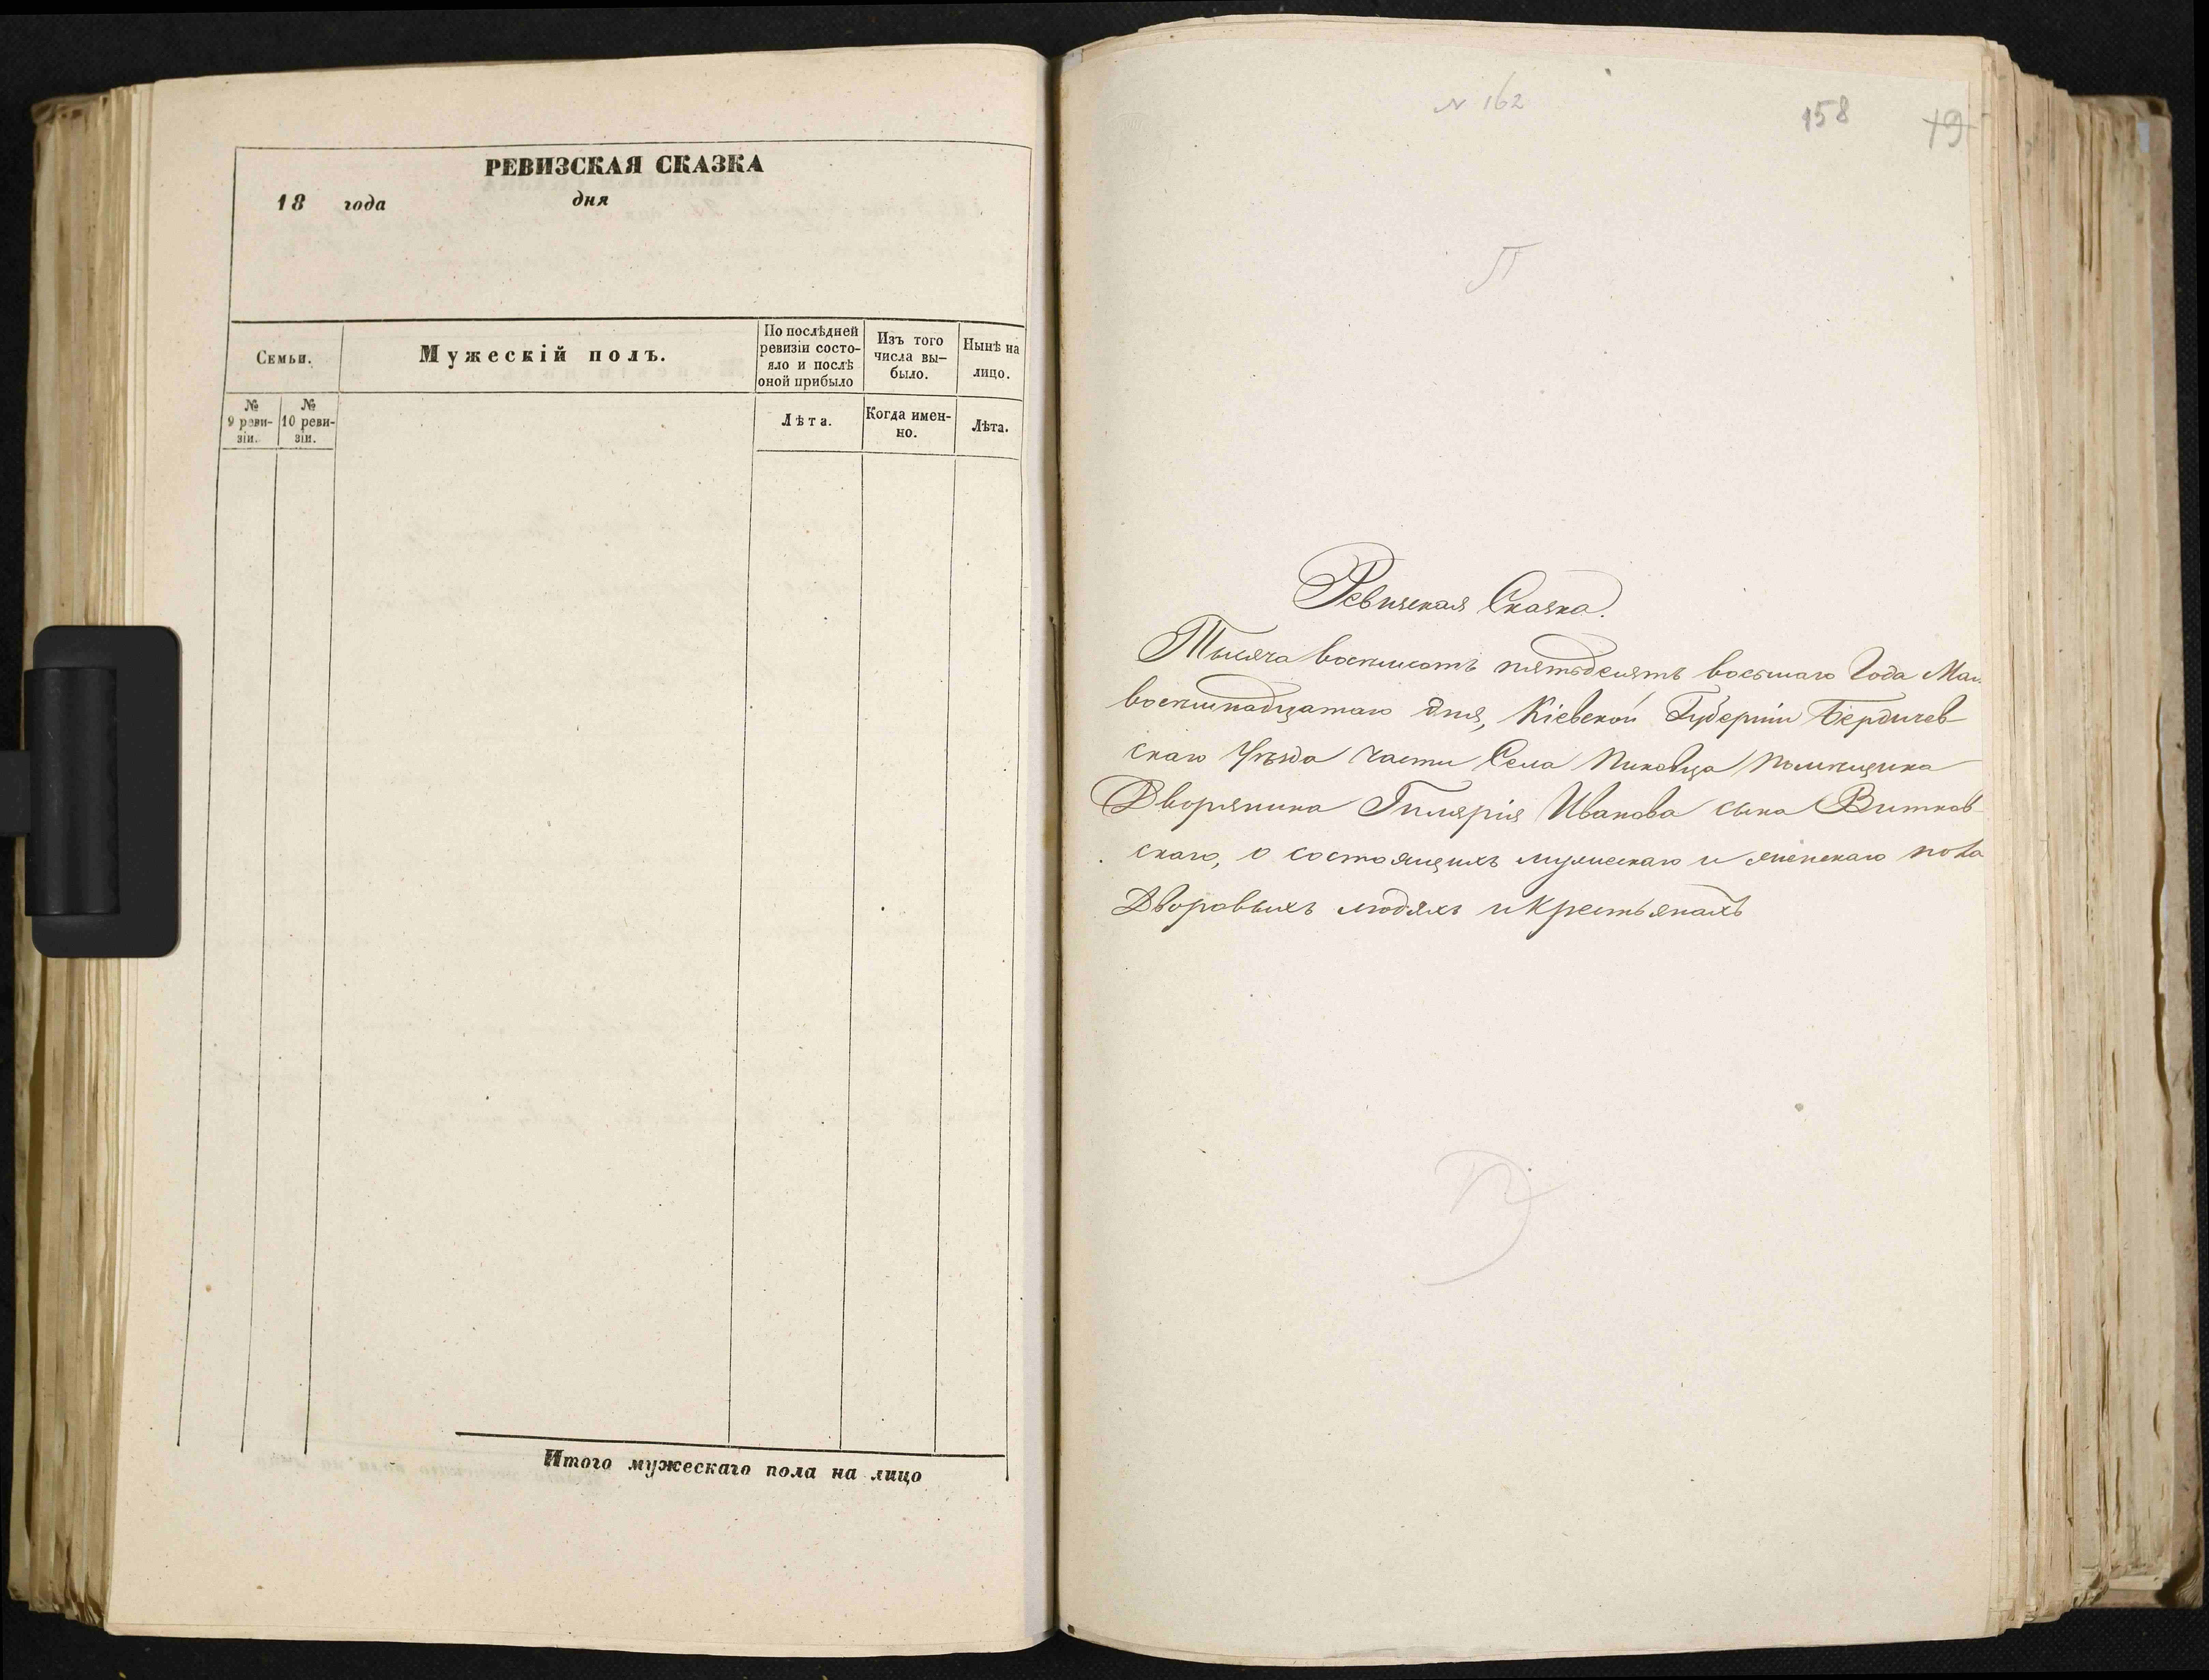 РЕВИЗСКАЯ СКАЗКА
18 года дня
Семьи.
Мужескій полъ.
По послѣдней ревизіи состо-
яло и послѣ
оной прибыло
Изъ того
числа вы-
было.
Нынѣ на
лицо.
№
9 реви-
зіи.
№
10 реви-
зіи.
Лѣта.
Когда имен-
но.
Лѣта.
Итого мужескаго пола на лицо
N 162
158
19
П
Ревизская Сказка.
Тысяча восемьсотъ пятьдесятъ восьмаго Года Мая
восемнадцатаго дня, Кіевской Губерніи Бердичев-
скаго Уѣзда части Села Пиковца Помѣщика
Дворянина Гилярія Иванова сына Витков-
скаго, о состоящихъ мужескаго и женскаго пола
Дворовыхъ людяхъ и Крестьянахъ